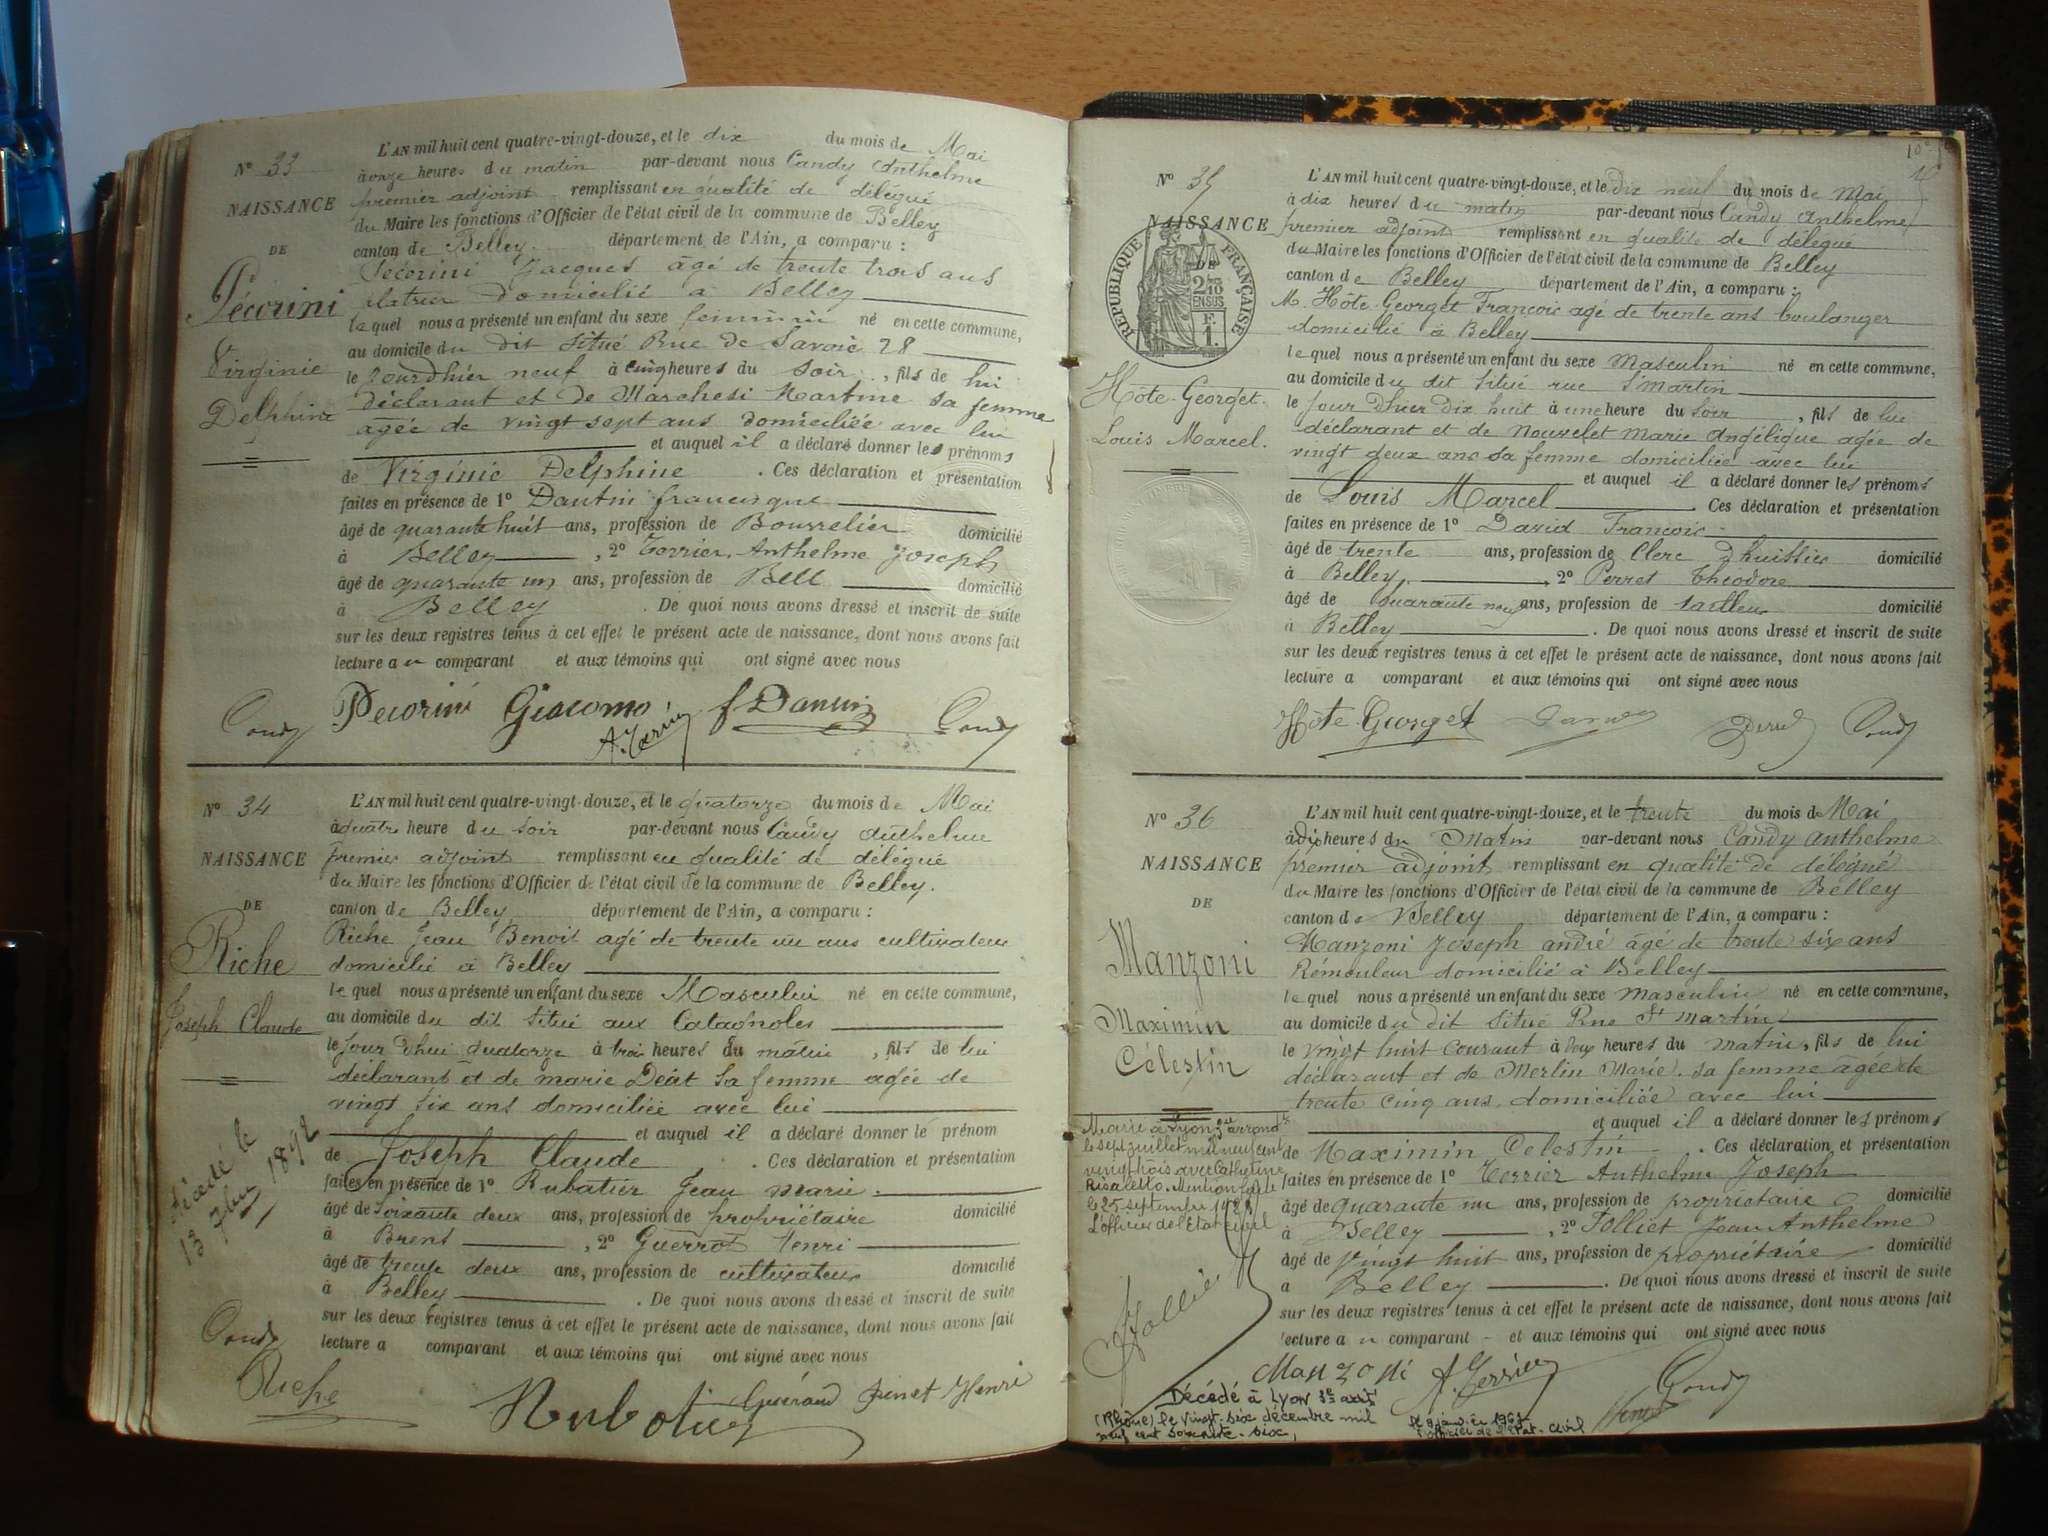 L'AN mil huit cent quatre-vingt-douze, et le dix du mois de Mai
N° 33
à onze heures du matin par-devant nous Candy Anthelme
premier adjoint remplissant en qualité de délégué
NAISSANCE
du Maire les fonctions d'Officier de l'état civil de la commune de Belley
DE
canton de Belley département de l'Ain, a comparu :
Pécorini Jacques âgé de trente trois ans
Pécorini
platrier domicilié à Belley
lequel nous a présenté un enfant du sexe feminin né en cette commune,
Virginie
au domicile du dit situé Rue de Savoie 28
le jour d'hier neuf à cinq heures du soir, fils de lui
Delphine
déclarant et de Marchesi Martine sa femme
agée de vingt sept ans domiciliée avec lui
et auquel il a déclaré donner les prénoms
de Virginie Delphine . Ces déclaration et présentation
faites en présence de 1° Dantin francisque
âgé de quarante huit ans, profession de Bourrelier domicilié
à Belley , 2° Terrier Anthelme Joseph
âgé de quarante un ans, profession de domicilié
à Belley . De quoi nous avons dressé et inscrit de suite
sur les deux registres tenus à cet effet le présent acte de naissance, dont nous avons fait
lecture au comparant et aux témoins qui ont signé avec nous
Candy Pecorini Giacomo A. Terrier f Dantin Candy
N° 34
L'AN mil huit cent quatre-vingt-douze, et le quatorze du mois de Mai
à quatre heure du soir par-devant nous Candy Anthelme
NAISSANCE
premier adjoint remplissant en qualité de délégué
du Maire les fonctions d'Officier de l'état civil de la commune de Belley.
DE
canton de Belley département de l'Ain, a comparu :
Riche
Riche Jean Benoit agé de trente un ans cultivateur
domicilié à Belley
lequel nous a présenté un enfant du sexe Masculin né en cette commune,
Joseph Claude
au domicile du dit situé aux Catagnoles
le jour d'hui quatorze à trois heures du matin , fils de lui
déclarant et de marie Déat sa femme agée de
vingt six ans domiciliée avec lui
et auquel il a déclaré donner le prénom
de Joseph Claude . Ces déclaration et présentation
Décédé le
13 7bre 1892
faites en présence de 1° Rubatier Jean marie
âgé de soixante deux ans, profession de propriétaire domicilié
à Brens , 2° Henri
âgé de trente deux ans, profession de cultivateur domicilié
à Belley . De quoi nous avons dressé et inscrit de suite
sur les deux registres tenus à cet effet le présent acte de naissance, dont nous avons fait
lecture a comparant et aux témoins qui ont signé avec nous
Candy
Riche Rubatier Henri
N° 35
L'AN mil huit cent quatre-vingt-douze, et le dix neuf du mois de Mai
à dix heures du matin par-devant nous Candy Anthelme
NAISSANCE
premier adjoint remplissant en qualité de délégué
du Maire les fonctions d'Officier de l'état civil de la commune de Belley
DE
RÉPUBLIQUE FRANÇAISE
2/10 EN SUS
F. 1.
canton de Belley département de l'Ain, a comparu :
M. Hôte-Georget François agé de trente ans boulanger
domicilié à Belley
lequel nous a présenté un enfant du sexe Masculin né en cette commune,
au domicile du dit situé rue St martin
Hôte-Georget
le jour d'hier dix huit à une heure du soir , fils de lui
déclarant et de Nouvelet Marie Angélique agée de
Louis Marcel.
vingt deux ans sa femme domiciliée avec lui
et auquel il a déclaré donner les prénoms
de Louis Marcel . Ces déclaration et présentation
faites en présence de 1° David François
âgé de trente ans, profession de Clerc d'huissier domicilié
à Belley , 2° Perret Théodore
âgé de quarante neuf ans, profession de tailleur domicilié
à Belley . De quoi nous avons dressé et inscrit de suite
sur les deux registres tenus à cet effet le présent acte de naissance, dont nous avons fait
lecture a comparant et aux témoins qui ont signé avec nous
Hôte-Georget Perret Candy
N° 36
L'AN mil huit cent quatre-vingt-douze, et le trente du mois de Mai
à dix heures du Matin par-devant nous Candy Anthelme
NAISSANCE
premier adjoint remplissant en qualité de délégué
du Maire les fonctions d'Officier de l'état civil de la commune de Belley
DE
canton de Belley département de l'Ain, a comparu :
Manzoni
Manzoni Joseph andré âgé de trente six ans
Rémouleur domicilié à Belley
lequel nous a présenté un enfant du sexe masculin né en cette commune,
Maximin
au domicile du dit situé Rue St martin
Célestin
le vingt huit courant à deux heures du matin, fils de lui
déclarant et de Merlin Marie sa femme âgée de
trente cinq ans, domiciliée avec lui
et auquel il a déclaré donner les prénoms
de Maximin Celestin . Ces déclaration et présentation
Marié à Lyon 3e arrondt
le sept juillet mil neuf cent
vingt trois avec Catherine
Risaletto. Mention faite
le 25 septembre 1923
L'officier de l'Etat civil
faites en présence de 1° Terrier Anthelme Joseph
âgé de quarante un ans, profession de propriétaire domicilié
à Belley , 2° Folliet Jean Anthelme
âgé de vingt huit ans, profession de propriétaire domicilié
à Belley . De quoi nous avons dressé et inscrit de suite
sur les deux registres tenus à cet effet le présent acte de naissance, dont nous avons fait
lecture au comparant et aux témoins qui ont signé avec nous
Manzoni A. Terrier Candy
Décédé à Lyon 3e arrt
(Rhône) le vingt-six décembre mil
neuf cent soixante-six,
le 9 janvier 1967
l'officier de l'Etat-Civil